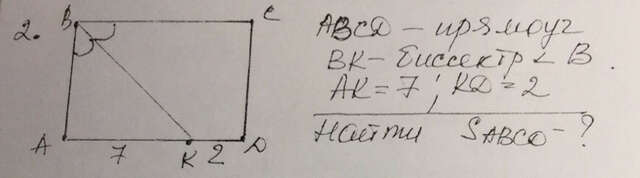 2.
B C
ABCD - прямоуг
BK - биссектр ∠ B.
AK = 7; KD = 2
A 7 K 2 D
Найти SABCD - ?